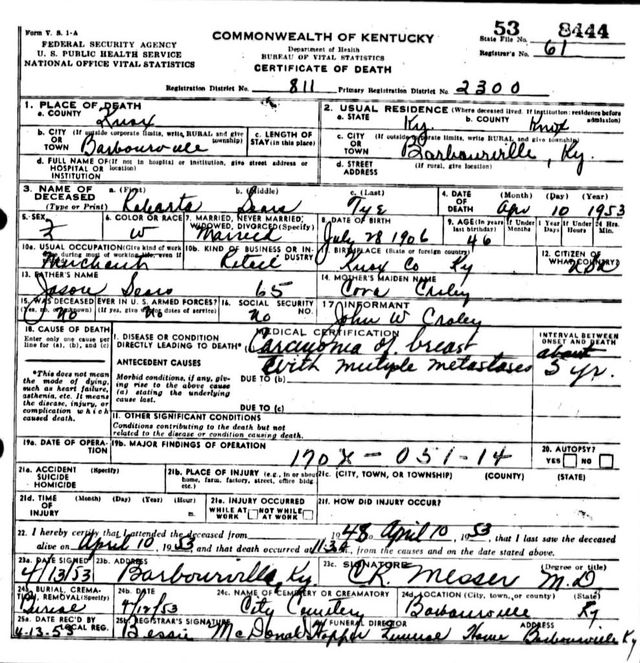 Form V. S. 1-A
FEDERAL SECURITY AGENCY
U. S. PUBLIC HEALTH SERVICE
NATIONAL OFFICE VITAL STATISTICS
COMMONWEALTH OF KENTUCKY
Department of Health
BUREAU OF VITAL STATISTICS
CERTIFICATE OF DEATH
53 8444
State File No.
Registrar's No. 61
Registration District No. 811 Primary Registration District No. 2300
1. PLACE OF DEATH
a. COUNTY Knox
b. CITY (If outside corporate limits, write RURAL and give township)
OR TOWN Barbourville
c. LENGTH OF STAY (in this place)
d. FULL NAME OF (If not in hospital or institution, give street address or location)
HOSPITAL OR INSTITUTION
2. USUAL RESIDENCE (Where deceased lived. If institution: residence before admission)
a. STATE Ky. b. COUNTY Knox
c. CITY (If outside corporate limits, write RURAL and give township)
OR TOWN Barbourville, Ky.
d. STREET ADDRESS (If rural, give location)
3. NAME OF DECEASED (Type or Print)
a. (First) Roberta b. (Middle) Sears c. (Last) Tye
4. DATE OF DEATH (Month) (Day) (Year) Apr 10 1953
5. SEX F
6. COLOR OR RACE W
7. MARRIED, NEVER MARRIED, WIDOWED, DIVORCED (Specify) Married
8. DATE OF BIRTH July 28 1906
9. AGE (In years last birthday) 46
If Under 1 Year Months Days If Under 24 Hrs. Hours Min.
10a. USUAL OCCUPATION (Give kind of work done during most of working life, even if
Merchant
10b. KIND OF BUSINESS OR INDUSTRY Retail
BIRTHPLACE (State or foreign country) Knox Co Ky
12. CITIZEN OF WHAT COUNTRY? USA
13. FATHER'S NAME Jason Sears 65
14. MOTHER'S MAIDEN NAME Cora
15. WAS DECEASED EVER IN U. S. ARMED FORCES?
(Yes, no, or unknown) (If yes, give war or dates of service)
No No
16. SOCIAL SECURITY NO. No
17 INFORMANT John W Croley
18. CAUSE OF DEATH
Enter only one cause per line for (a), (b), and (c)
*This does not mean the mode of dying, such as heart failure, asthenia, etc. It means the disease, injury, or complication which caused death.
MEDICAL CERTIFICATION
I. DISEASE OR CONDITION
DIRECTLY LEADING TO DEATH* Carcinoma of breast
with multiple metastases
ANTECEDENT CAUSES
Morbid conditions, if any, giving rise to the above cause (a) stating the underlying cause last.
DUE TO (b)
DUE TO (c)
INTERVAL BETWEEN ONSET AND DEATH
about
5 yr.
II. OTHER SIGNIFICANT CONDITIONS
Conditions contributing to the death but not related to the disease or condition causing death.
19a. DATE OF OPERATION
19b. MAJOR FINDINGS OF OPERATION
170X-051-14
20. AUTOPSY?
YES NO
21a. ACCIDENT SUICIDE HOMICIDE (Specify)
21b. PLACE OF INJURY (e.g., in or about home, farm, factory, street, office bldg., etc.)
21c. (CITY, TOWN, OR TOWNSHIP) (COUNTY) (STATE)
21d. TIME OF INJURY (Month) (Day) (Year) (Hour) m.
21e. INJURY OCCURRED
WHILE AT WORK NOT WHILE AT WORK
21f. HOW DID INJURY OCCUR?
22. I hereby certify that I attended the deceased from 1948 April 10, 1953, that I last saw the deceased
alive on April 10, 1953, and that death occurred at from the causes and on the date stated above.
23a. DATE SIGNED 4/13/53
23b. ADDRESS Barbourville, Ky.
23c. SIGNATURE CR. Messer (Degree or title) M.D
24a. BURIAL, CREMATION, REMOVAL (Specify) Burial
24b. DATE 4/12/53
24c. NAME OF CEMETERY OR CREMATORY City Cemetery
24d. LOCATION (City, town, or county) (State) Barbourville Ky.
25a. DATE REC'D BY LOCAL REG. 4-13-53
25b. REGISTRAR'S SIGNATURE Bessie McDonal
FUNERAL DIRECTOR Hopper Funeral Home
ADDRESS Barbourville Ky